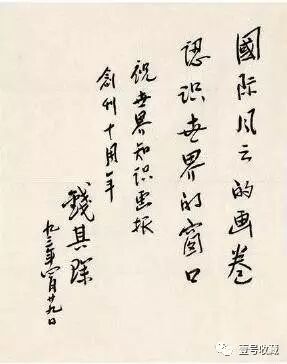 國际风云的画卷
認识世界的窗口
祝世界知识画报
創刊十周年
錢其琛
九三年四月廿九日
壹号收藏